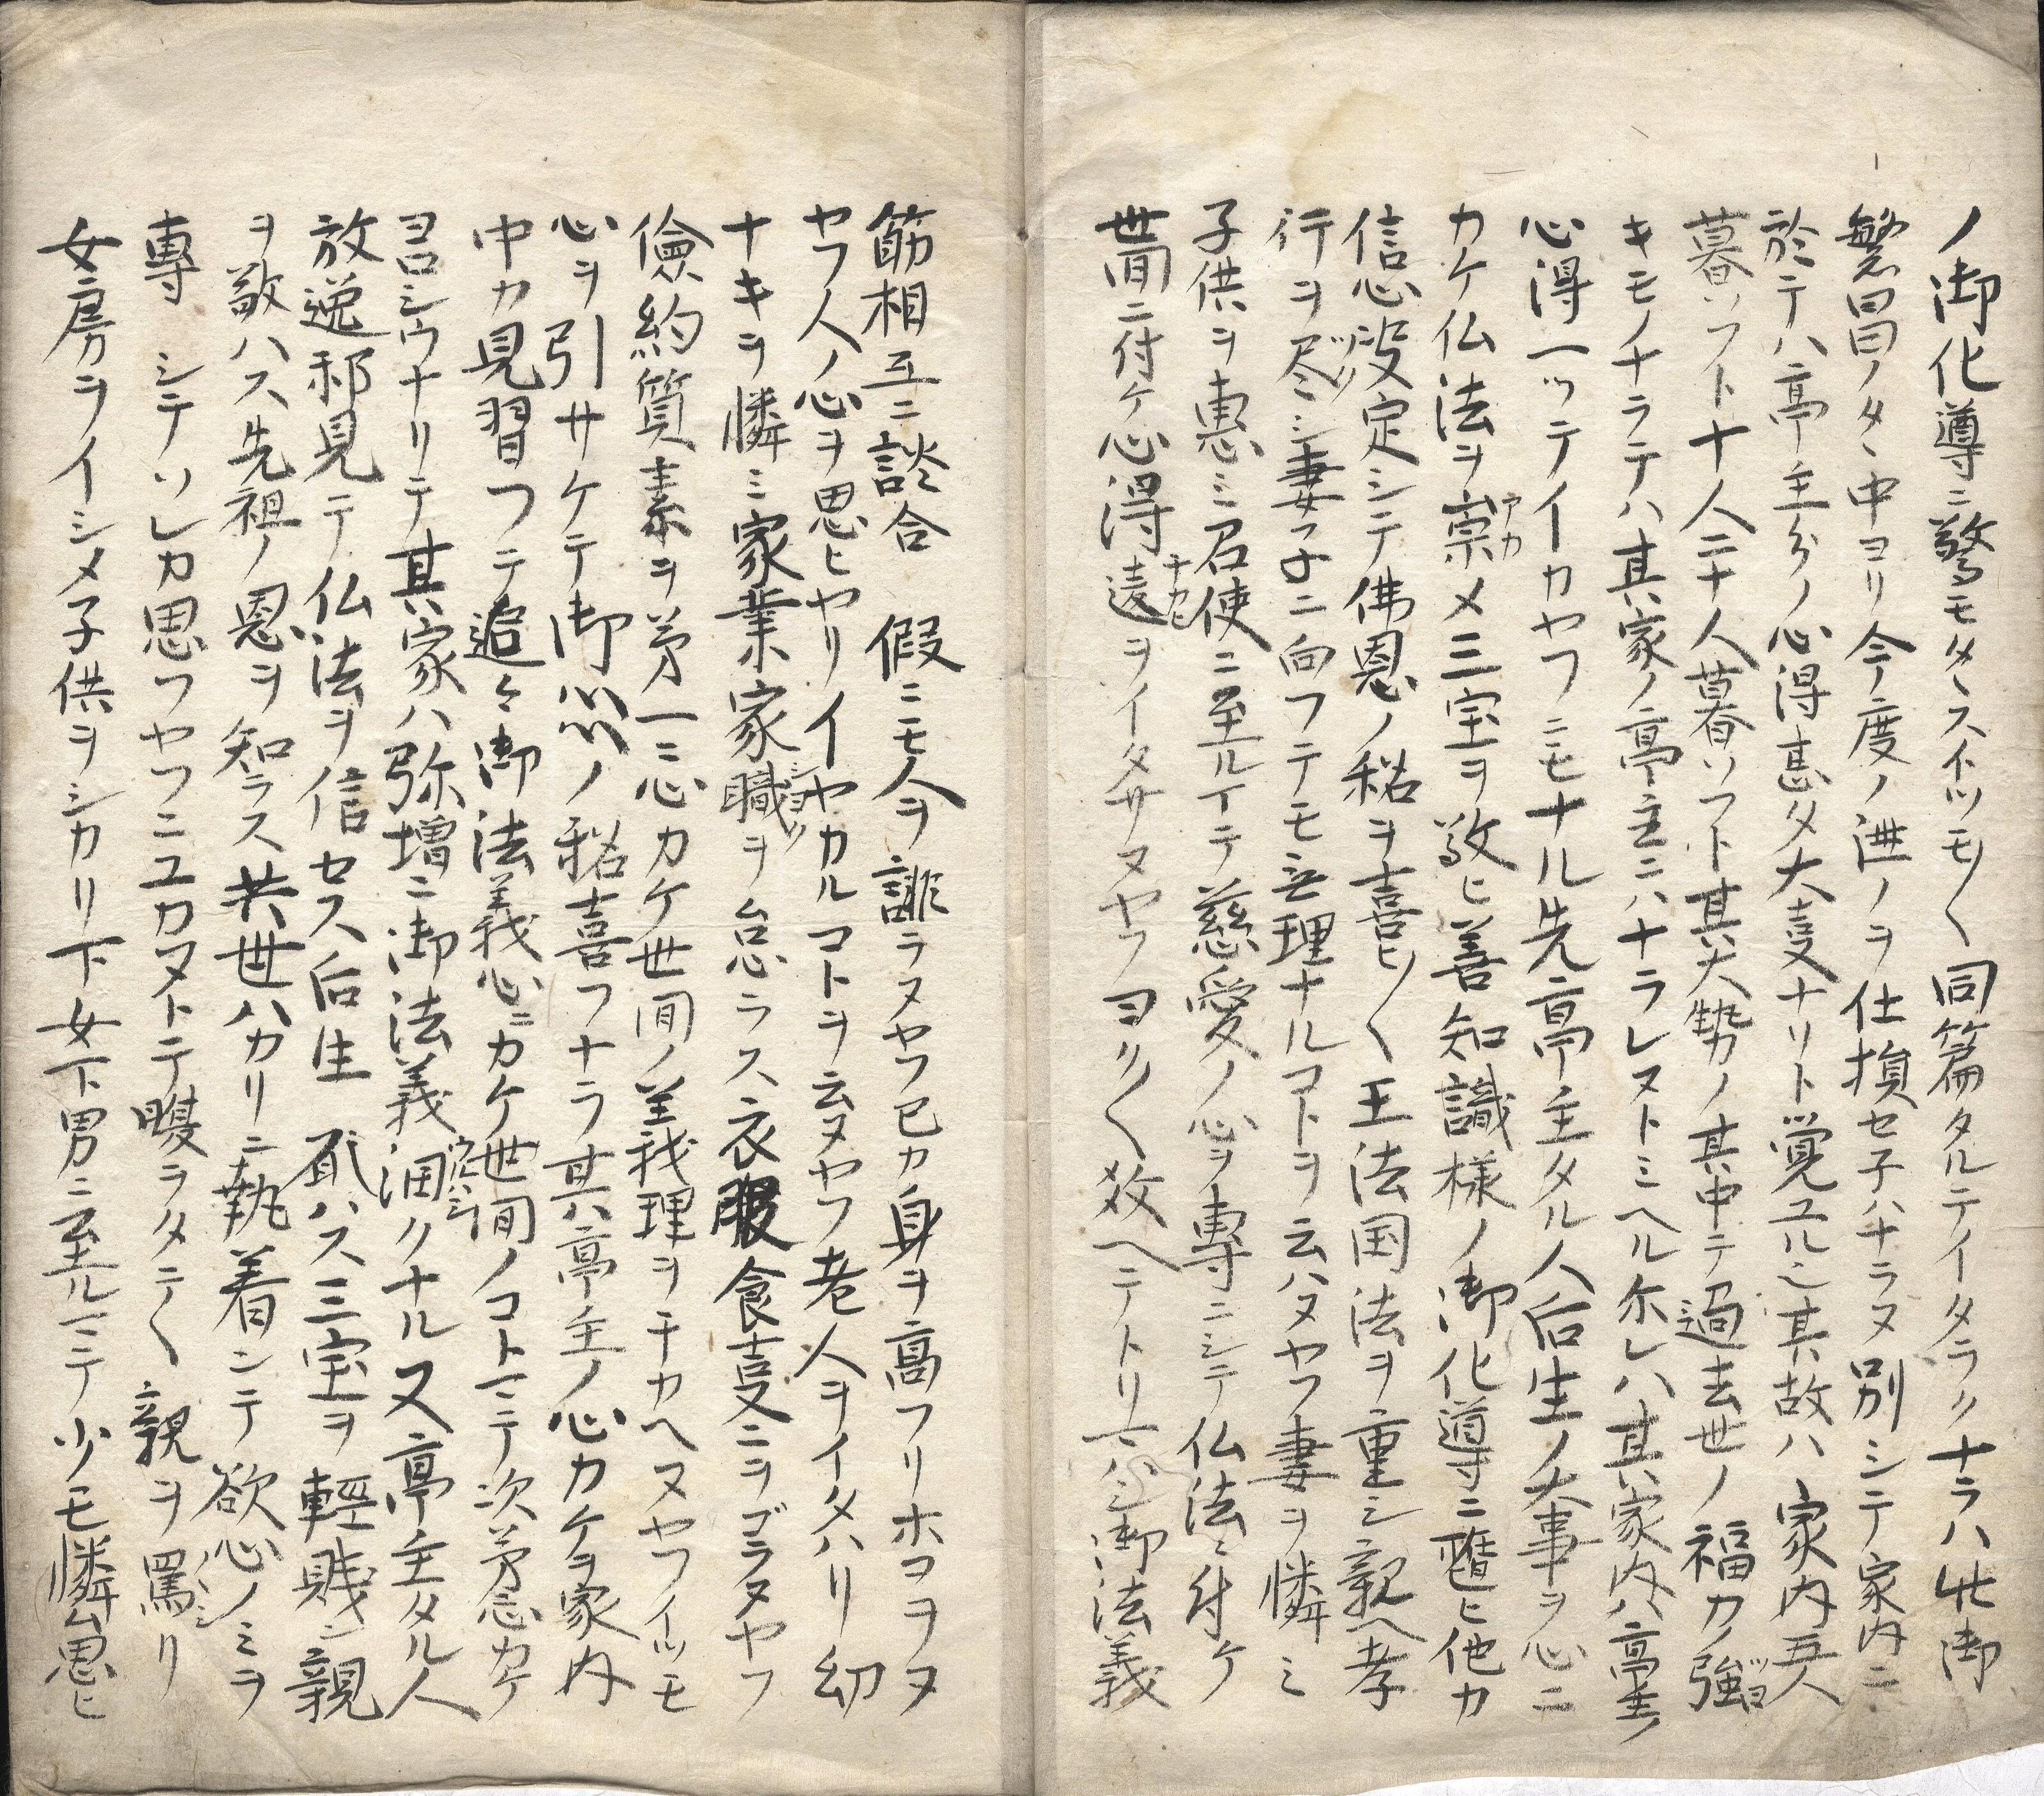 ノ御化導ニ驚モタヽスイツモ〳〵同篇タルテイタラクナラハ此御
繁昌ノタヽ中ヨリ今度ノ逰ノヲ仕損セ子ハナラヌ別シテ家内ニ
於テハ亭主分ノ心得甚タ大㕝ナリト覚ユル也其故ハ家内五人
暮ソフト十人二十人暮ソフト其大勢ノ其中テ過去世ノ福力ノ強
キモノナラテハ其家ノ亭主ニハナラレヌトミヘル尓レハ其家内ハ亭主ノ
心得一ツテイカヤフニモナル先亭主タル人后生ノ大事ヲ心ニ
カケ仏法ヲ崇メ三宝ヲ敬ヒ善知識様ノ御化導ニ随ヒ他力
信心決定シテ佛恩ノ称ヲ喜ヒ〳〵王法国法ヲ重シ親ヘ孝
行ヲ尽シ妻子ニ向フテモ無理ナルコトヲ云ハヌヤフ妻ヲ憐ミ
子供ヲ恵ミ召使ニ至ルイテ慈愛ノ心ヲ専ニシテ仏法ニ付ケ
世間ニ付ケ心得違ヲイタサヌヤフヨク〳〵教ヘテトリ一ハシ御法義
筋相互ニ談合 假ニモ人ヲ誹ラヌヤフ已カ身ヲ高フリホコヲヌ
ヤフ人ノ心ヲ思ヒヤリイヤカルコトヲ云ヌヤフ老人ヲイタハリ幼
ナキヲ憐ミ家業家職ヲ怠ラス衣服食㕝ニヲゴラヌヤフ
儉約質素ヲ第一ニ心カケ世間ノ義理ヲチカヘヌヤフイツモ
心ヲ引サケテ御恩ノ称喜フナラ其亭主ノ心カケヲ家内
中カ見習フテ追々御法義心ニガケ世間ノコト一ニテ次第念カケ
ヨロシウナリテ其家ハ弥増ニ御法義潤クナル又亭主タル人
放逸邪見テ仏法ヲ信セス后生 願ハス三宝ヲ軽賤シ親
ヲ敬ハス先祖ノ恩ヲ知ラス共世ハカリニ執着シテ欲心ノミヲ
専 シテソレカ思フヤフニユカヌトテ腹ラタテ〳〵親ヲ罵リ
女房ヲイシメ子供ヲシカリ下女下男ニ至ル一ニテ少モ憐思ヒ